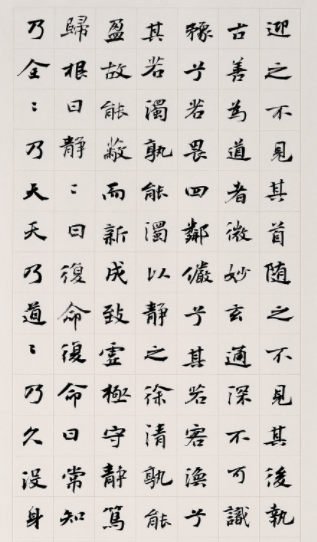 迎之不見其首随之不見其後執
古善為道者微妙玄通深不可識
豫兮若畏四鄰儼兮其若客渙兮
其若濁孰能濁以静之徐清孰能
盈故能蔽而新成致虛極守静篤
歸根曰静〻曰復命復命曰常知
乃全〻乃天天乃道〻乃久没身